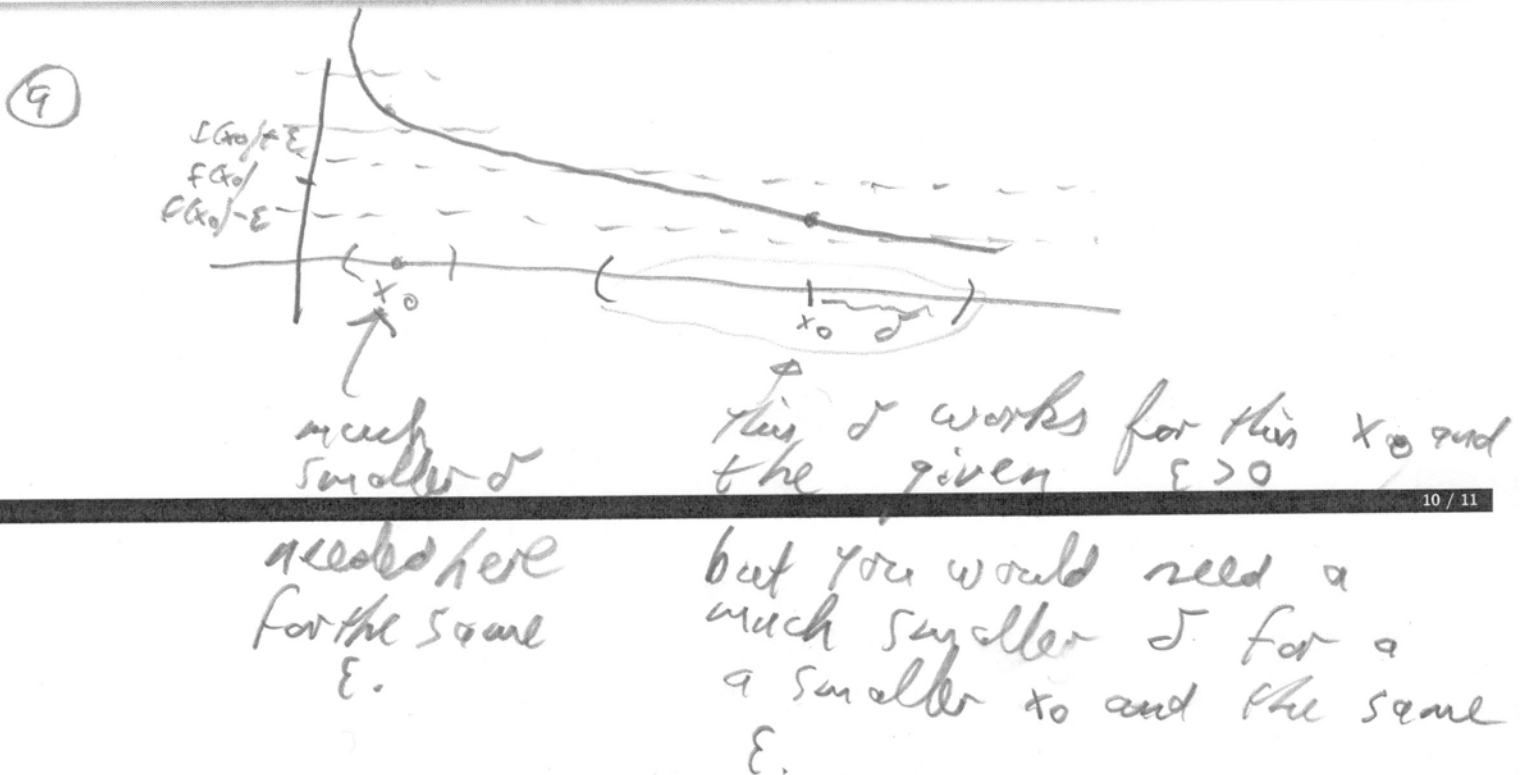 9
f(x₀)+ε
f(x₀)
f(x₀)-ε
x₀
x₀ δ
much
smaller δ
needed here
for the same
ε.
this δ works for this x₀ and
the given ε>0
10 / 11
but you would need a
much smaller δ for a
a smaller x₀ and the same
ε.